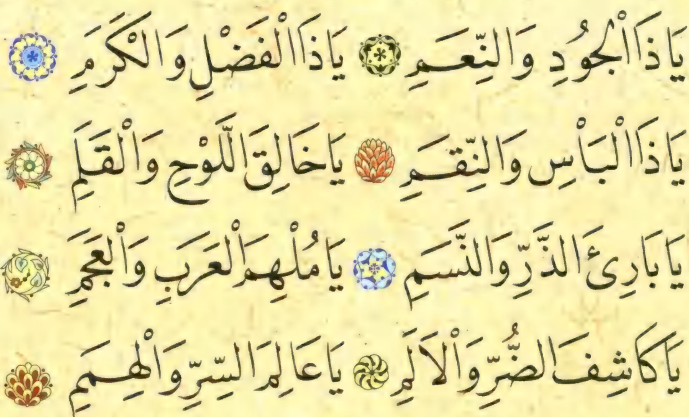 يَاذَا الْجُودِ وَالنِّعَمِ يَاذَا الْفَضْلِ وَالْكَرَمِ
يَاذَا الْبَأْسِ وَالنِّقَمِ يَاخَالِقَ اللَّوْحِ وَالْقَلَمِ
يَابَارِئَ الذَّرِّ وَالنَّسَمِ يَامُلْهِمَ الْعَرَبِ وَالْعَجَمِ
يَاكَاشِفَ الضُّرِّ وَالْاَلَمِ يَاعَالِمَ السِّرِّ وَالْهِمَمِ